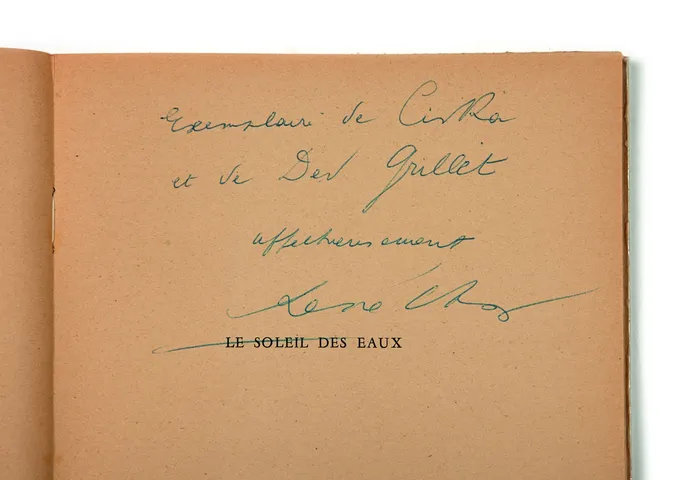 Exemplaire de Ciska
et de Ded Grillet
affectueusement
René Char
LE SOLEIL DES EAUX